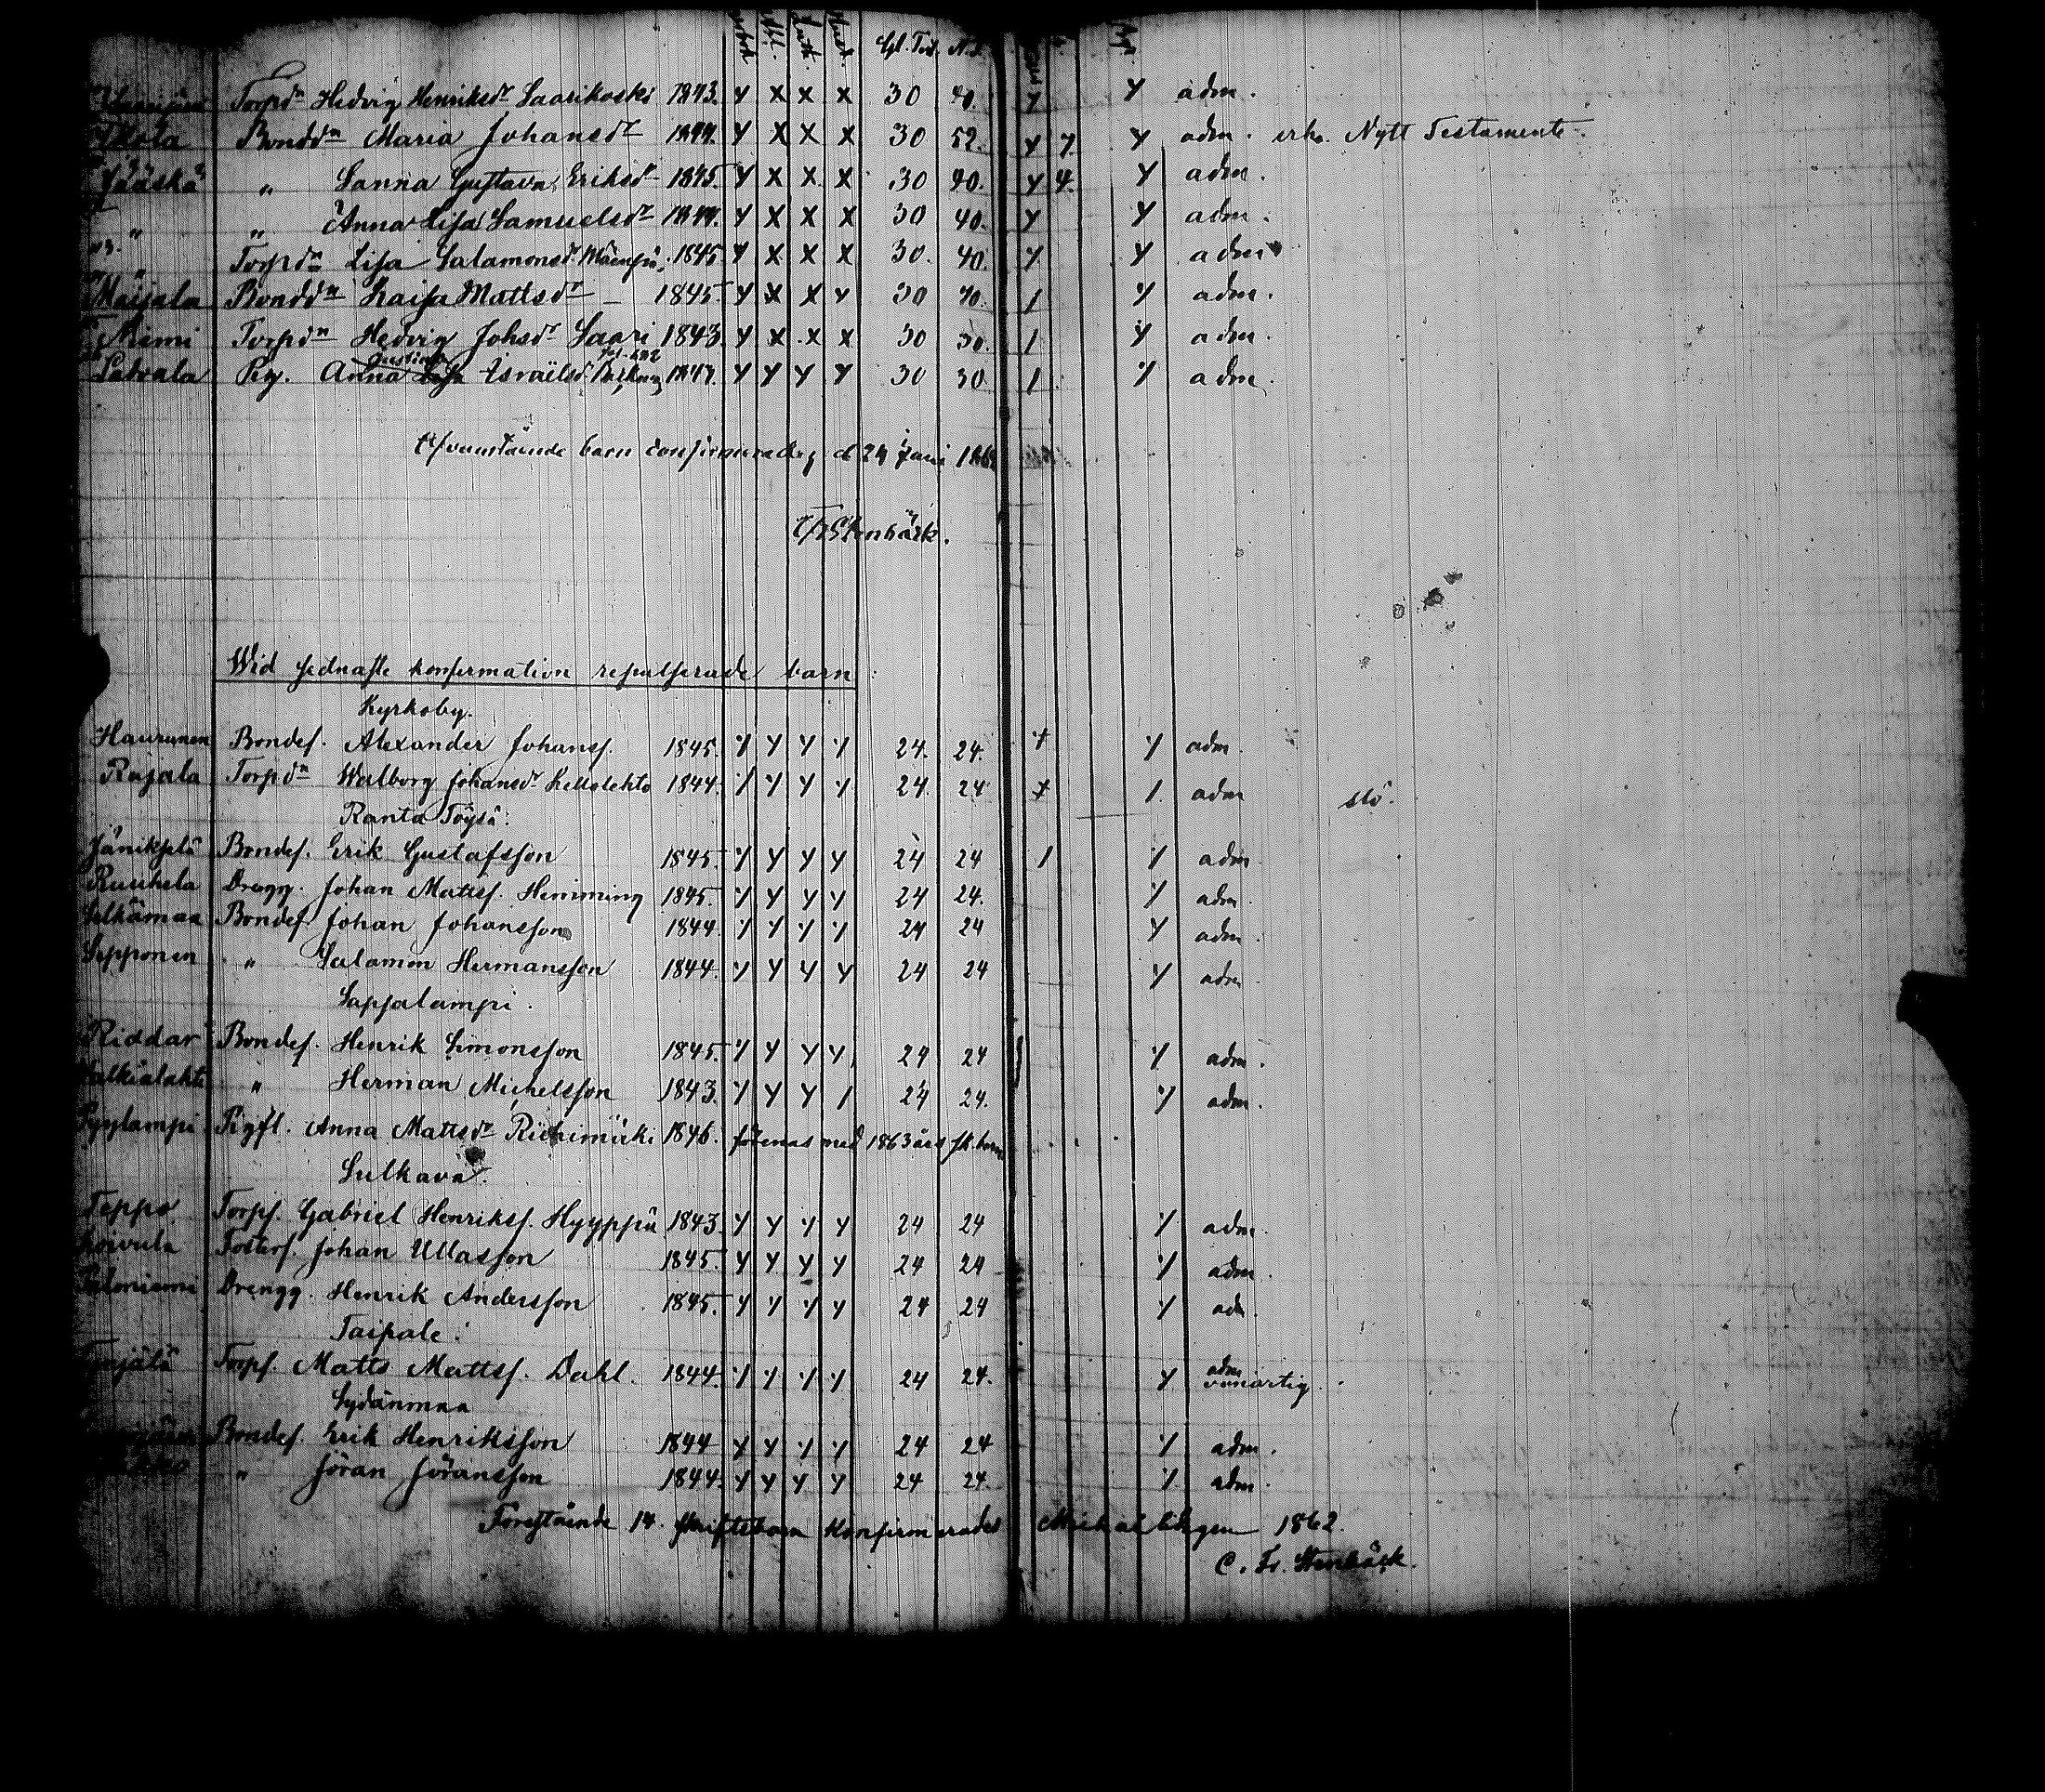 Gl. Test. N. T.
Torpdn Hedvig Henriksdr Saarikoski 1843. y x x x 30 40. y y adm.
Bonddn Maria Johansdr 1844. y x x x 30 52. y 7. y adm. erh. Nytt Testamente.
Jääskä " Sanna Gustava Eriksdr 1845. y x x x 30 40. y 4. y adm.
" " Anna Lisa Samuelsdr 1844. y x x x 30 40. y y adm.
" Torpdn Lisa Salamonsdr Mäenpä 1845 y x x x 30. 40. y y adm
Maijala Bonddn Kaisa Mattsdr — 1845. y x x y 30 40. 1 y adm.
Niemi Torpdn Hedvig Johsdr Saari 1843. y x x x 30 30. 1 y adm.
Pig. Anna Israëlsdr 1844. y y y y 30 30 1 y adm.
Ofvanstående barn confirmerades d 24 Juni
Stenbäck.
Wid sednaste konfirmation repulserade barn
Kyrkoby.
Haurunen Bondes. Alexander Johanss. 1845. y y y y 24. 24. y y adm.
Rajala Torpdn Walborg Johansdr Kellolehto 1844. y y y y 24. 24 y 1. adm slö.
Ranta Töysä.
Jänikselä Bondes. Erik Gustafsson 1845. y y y y 24 24 1 y adm.
Ruuhela Drengg. Johan Matts. Hemming 1845. y y y y 24 24. y adm.
Selkämaa Bondes. Johan Johansson 1844. y y y y 24 24 y adm.
Sepponen " Salamon Hermansson 1844. y y y y 24 24 y adm.
Sapsalampi.
Riddar Bondes. Henrik Simonsson 1845. y y y y 24 24 y adm.
" Herman Michelsson 1843. y y y 1 24 24. y adm.
Pyylampi Pigfl. Anna Mattsdr Riihimäki 1846. förenas med 1863 års sk. barn
Sulkava.
Teppo Torps. Gabriel Henrikss. Hyyppä 1843. y y y y 24 24 y adm.
Koivula Fosters. Johan Ullasson 1845. y y y y 24 24 y adm.
Drengg. Henrik Andersson 1845. y y y y 24 24 y adm.
Taipale.
Torps. Matts Mattss. Dahl. 1844. y y y y 24 24. y adm
vanartig.
Sydänmaa
Bondes. Erik Henriksson 1844 y y y y 24 24 y adm.
" Jöran Jöransson 1844. y y y y 24 24. y adm.
Förestående 14. skriftebarn konfirmerades Michaelidagen 1862.
C. Fr. Stenbäck.